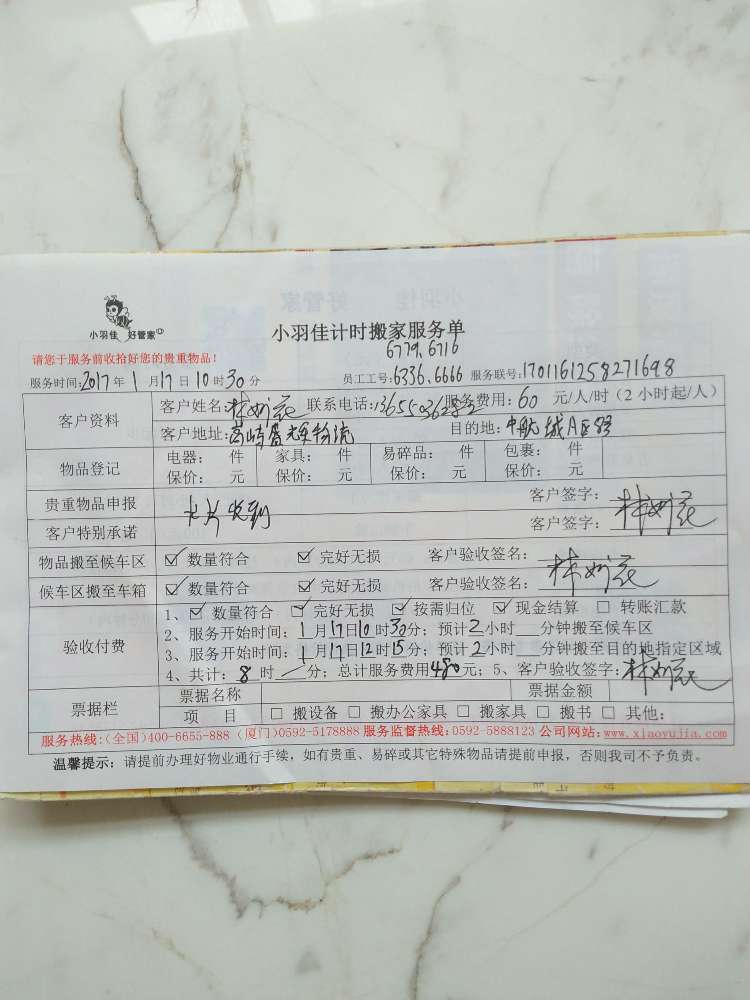 小羽佳 好管家
小羽佳计时搬家服务单
请您于服务前收拾好您的贵重物品!
6779、6716
服务时间:2017年1月17日10时30分 员工工号:6336、6666 服务联号:1701161258271698
客户资料
客户姓名: 联系电话: 服务费用:60 元/人/时(2小时起/人)
客户地址: 目的地:中航城A区83
物品登记
电器: 件 家具: 件 易碎品: 件 包裹: 件
保价: 元 保价: 元 保价: 元 保价: 元
贵重物品申报 客户签字:
客户特别承诺 客户签字:
物品搬至候车区 ☑ 数量符合 ☑ 完好无损 客户验收签名:
候车区搬至车箱 ☑ 数量符合 ☑ 完好无损 客户验收签名:
验收付费
1、☑ 数量符合 ☑ 完好无损 ☑ 按需归位 ☑ 现金结算 □ 转账汇款
2、服务开始时间:1月17日10时30分;预计2小时__分钟搬至候车区
3、服务开始时间:1月17日12时15分;预计2小时__分钟搬至目的地指定区域
4、共计:8时 分;总计服务费用480元;5、客户验收签字:
票据栏
票据名称 票据金额
项 目 □ 搬设备 □ 搬办公家具 □ 搬家具 □ 搬书 □ 其他:
服务热线:(全国)400-6655-888 (厦门)0592-5178888 服务监督热线:0592-5888123 公司网站:www.xiaoyujia.com
温馨提示:请提前办理好物业通行手续,如有贵重、易碎或其它特殊物品请提前申报,否则我司不予负责。